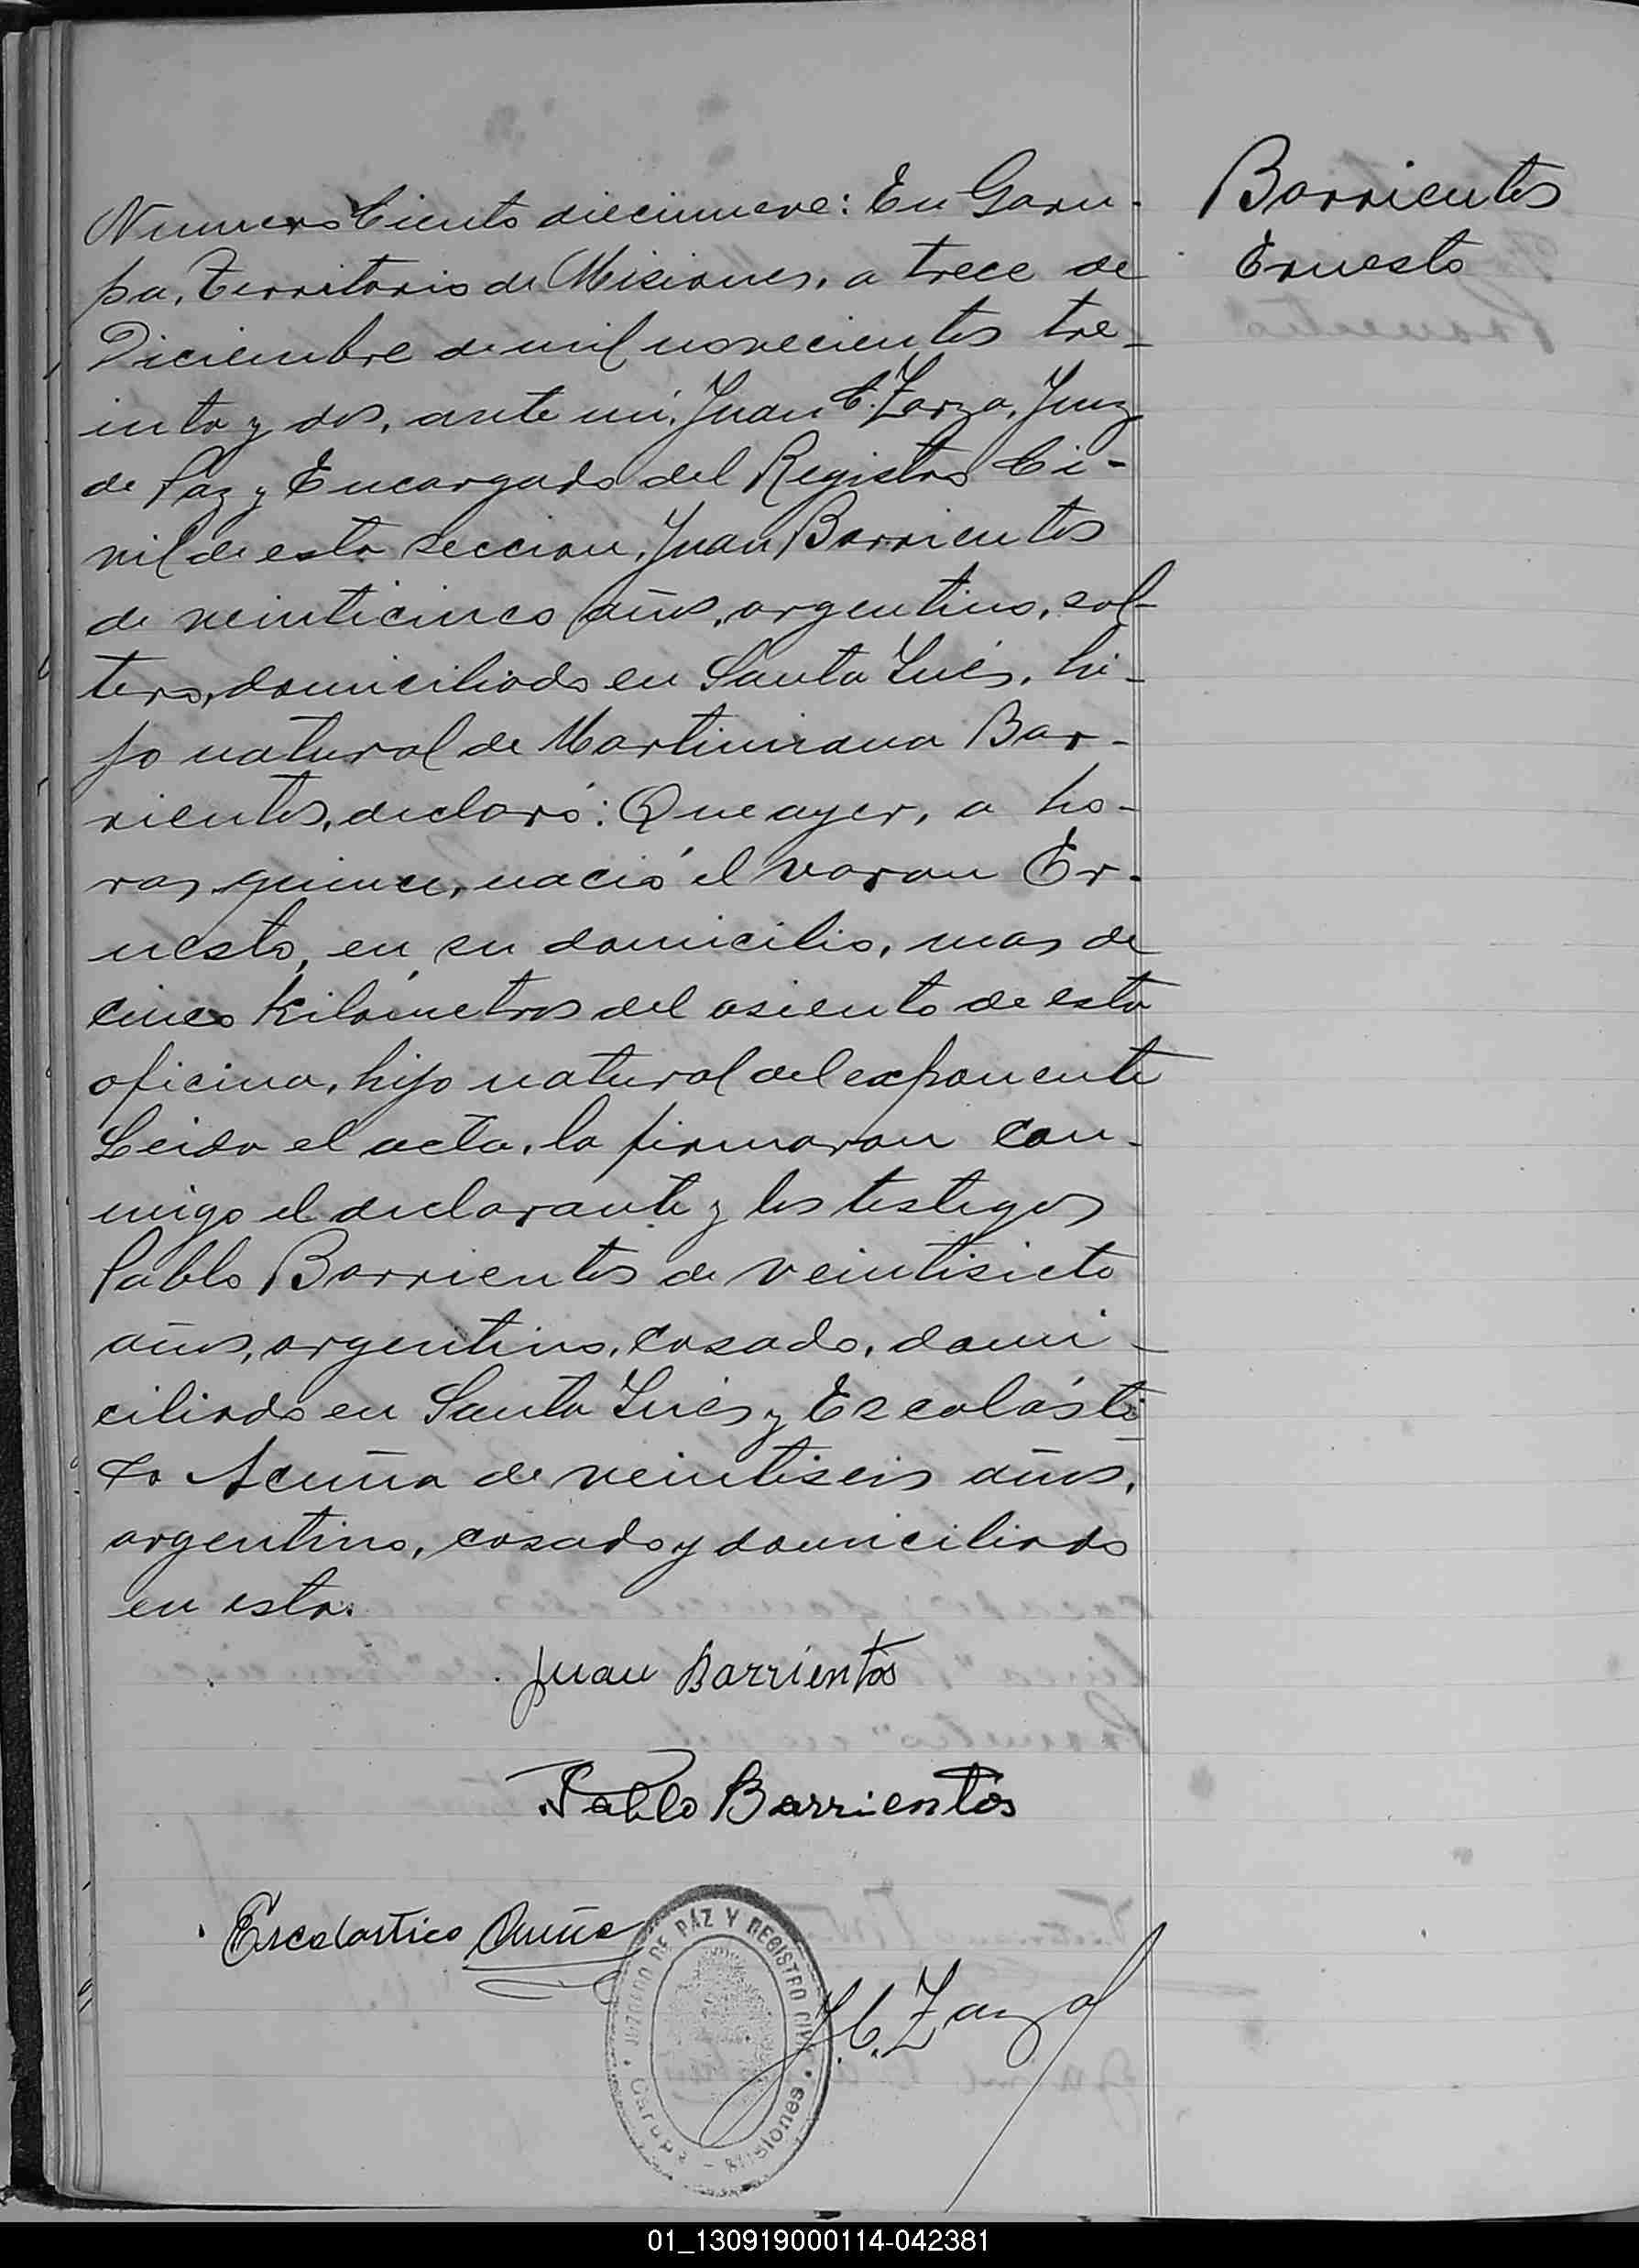 Barrientos
Ernesto
Numero Ciento diecinueve: En Garu-
pa, Territorio de Misiones, a trece de
Diciembre de mil novecientos tre-
inta y dos, ante mi, Juan C. Zarza, Juez
de Paz y Encargado del Registro Ci-
vil de esta seccion, Juan Barrientos
de veinticinco años, argentino, sol-
tero, domiciliado en Santa Inés, hi-
jo natural de Martiniana Bar-
rientos, declaró: Que ayer, a ho-
ras quince, nació el varon Er-
nesto, en su domicilio, mas de
cinco kilómetros del asiento de esta
oficina, hijo natural del exponente
Leida el acta, la firmaron con-
migo el declarante y los testigos
Pablo Barrientos de veintisiete
años, argentino, casado, domi-
ciliado en Santa Inés y Escolásti
co Acuña de veintiseis años,
argentino, casado y domiciliado
en esta.
Juan Barrientos
Pablo Barrientos
Escolastico Acuña
J. C. Zarza
JUZGADO DE PAZ Y REGISTRO CIVIL
Garupa - Misiones
01_130919000114-042381